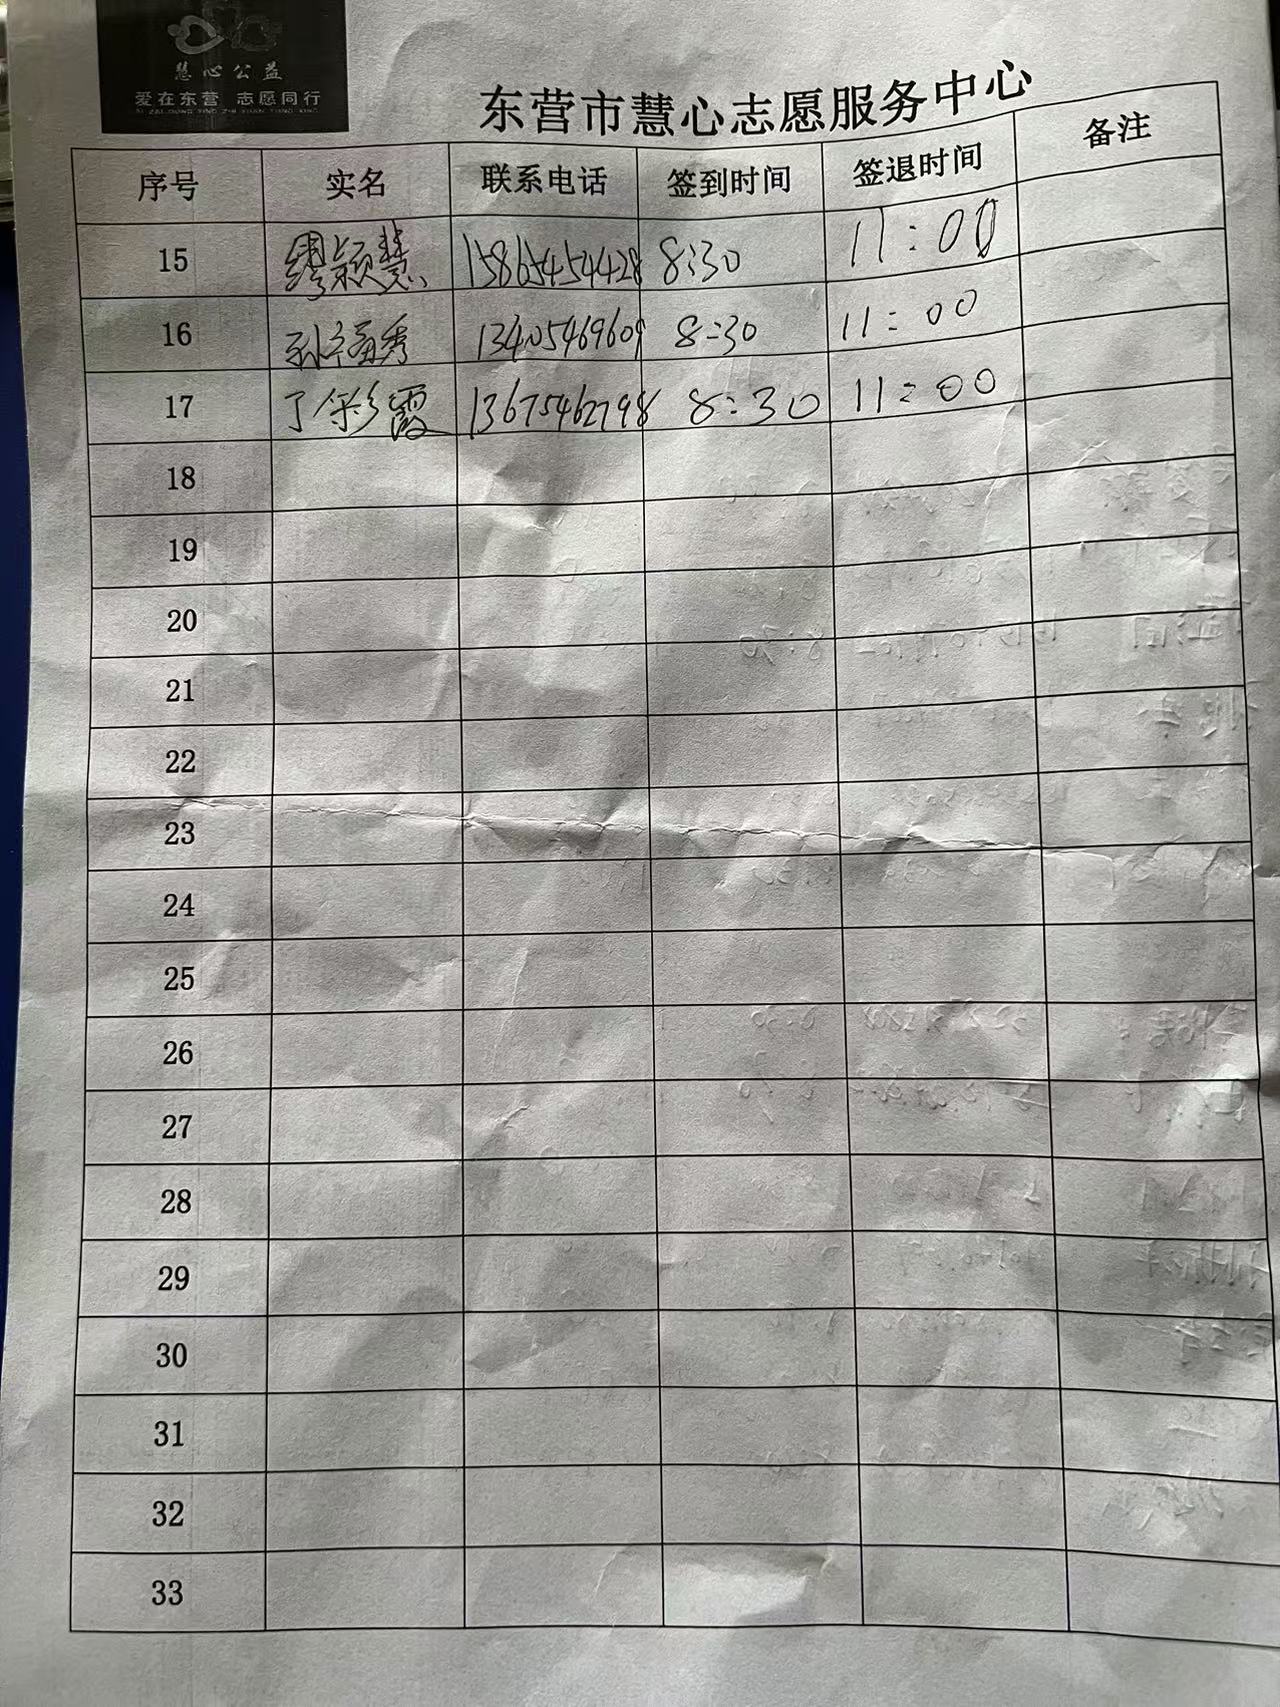 慧心公益
爱在东营 志愿同行
AI ZAI DONG YING ZHI YUAN TONG XING
东营市慧心志愿服务中心
序号 实名 联系电话 签到时间 签退时间 备注
15 缪颖慧 15865454428 8:30 11:00
16 孙 秀 13405469609 8:30 11:00
17 丁彩霞 13675462798 8:30 11:00
18
19
20
21
22
23
24
25
26
27
28
29
30
31
32
33